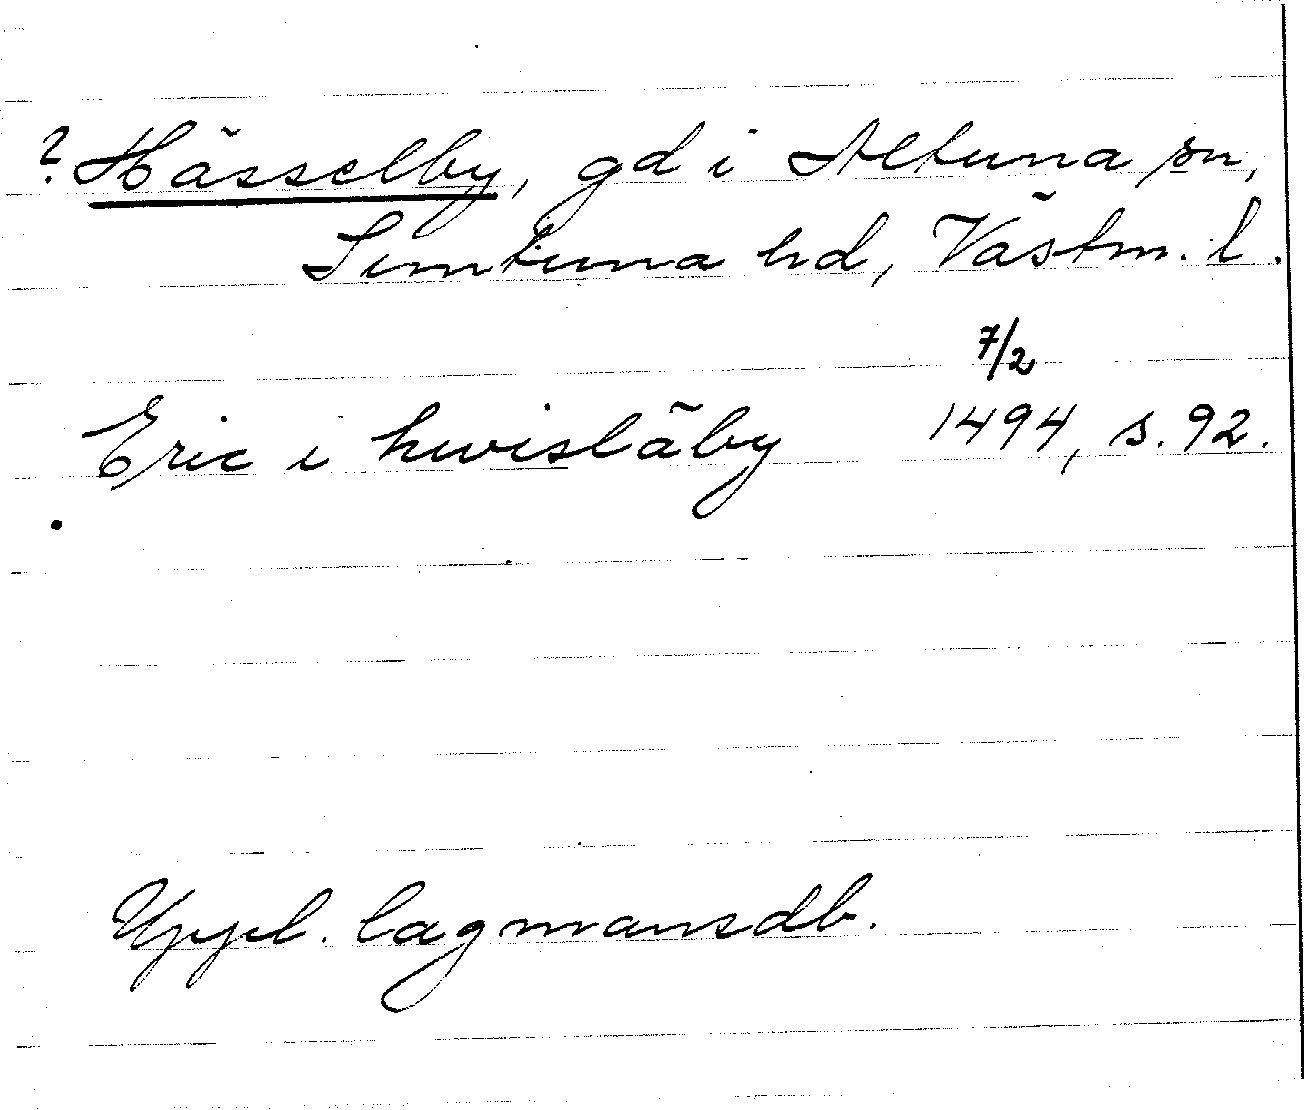 ? Hässelby, gd i Altuna sn,
Simtuna hd, Västm. l.
7/2
Eric i hwisläby 1494, s. 92.
Uppl. lagmansdb.